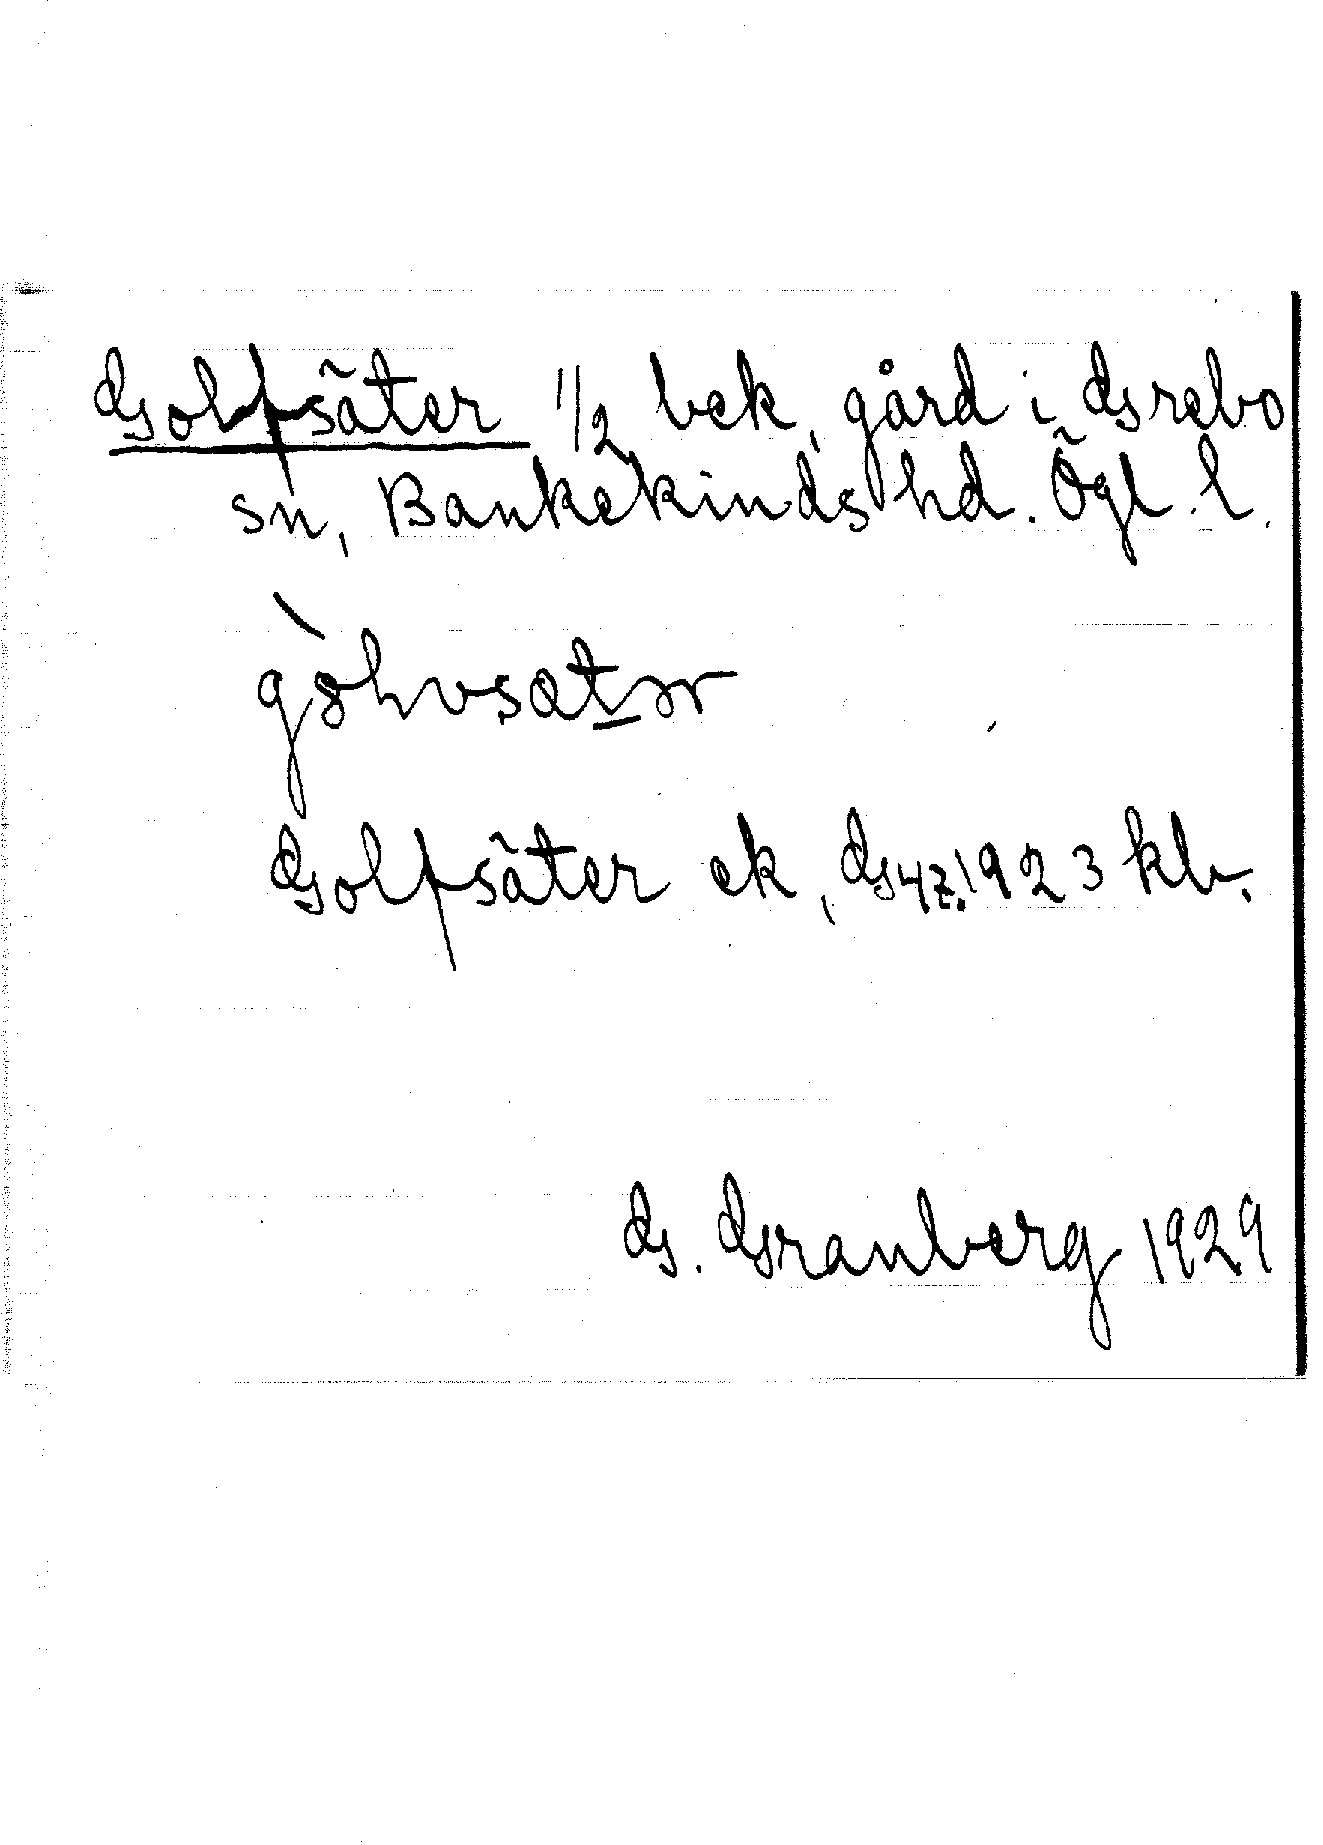 Golfsäter 1/2 bek, gård i Grebo
sn, Bankekinds hd. Ögl. l.
Golfsäter ek, G47.1923 kb.
G. Granberg 1929